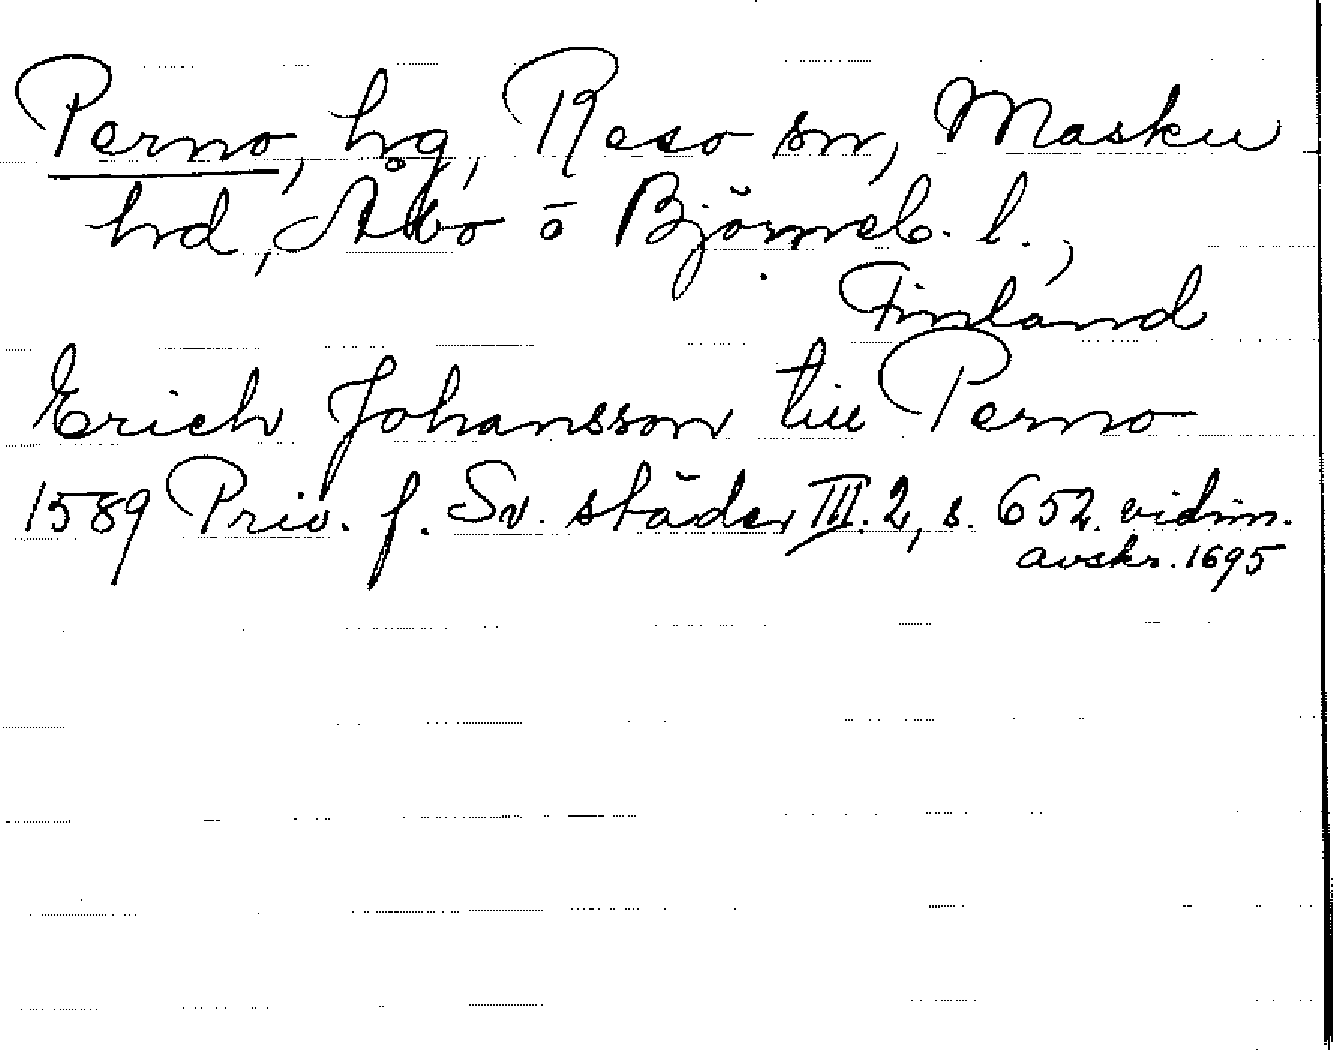 Perno, hg, Reso sn, Masku
hd, Åbo o Björneb. l.,
Finland
Erich Johansson till Perno
1589 Priv. f. Sv. städer III.2, s. 652. vidim.
avskr. 1695